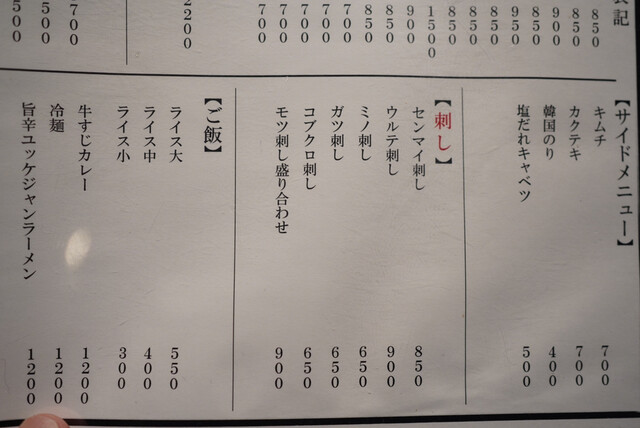 表記
850
850
900
850
950
850
850
850
1500
900
850
850
850
700
700
700
700
2200
700
500
500
【サイドメニュー】
キムチ 700
カクテキ 700
韓国のり 400
塩だれキャベツ 500
【刺し】
センマイ刺し 850
ウルテ刺し 900
ミノ刺し 650
ガツ刺し 650
コブクロ刺し 650
モツ刺し盛り合わせ 900
【ご飯】
ライス大 550
ライス中 400
ライス小 300
牛すじカレー 1200
冷麺 1200
旨辛ユッケジャンラーメン 1200